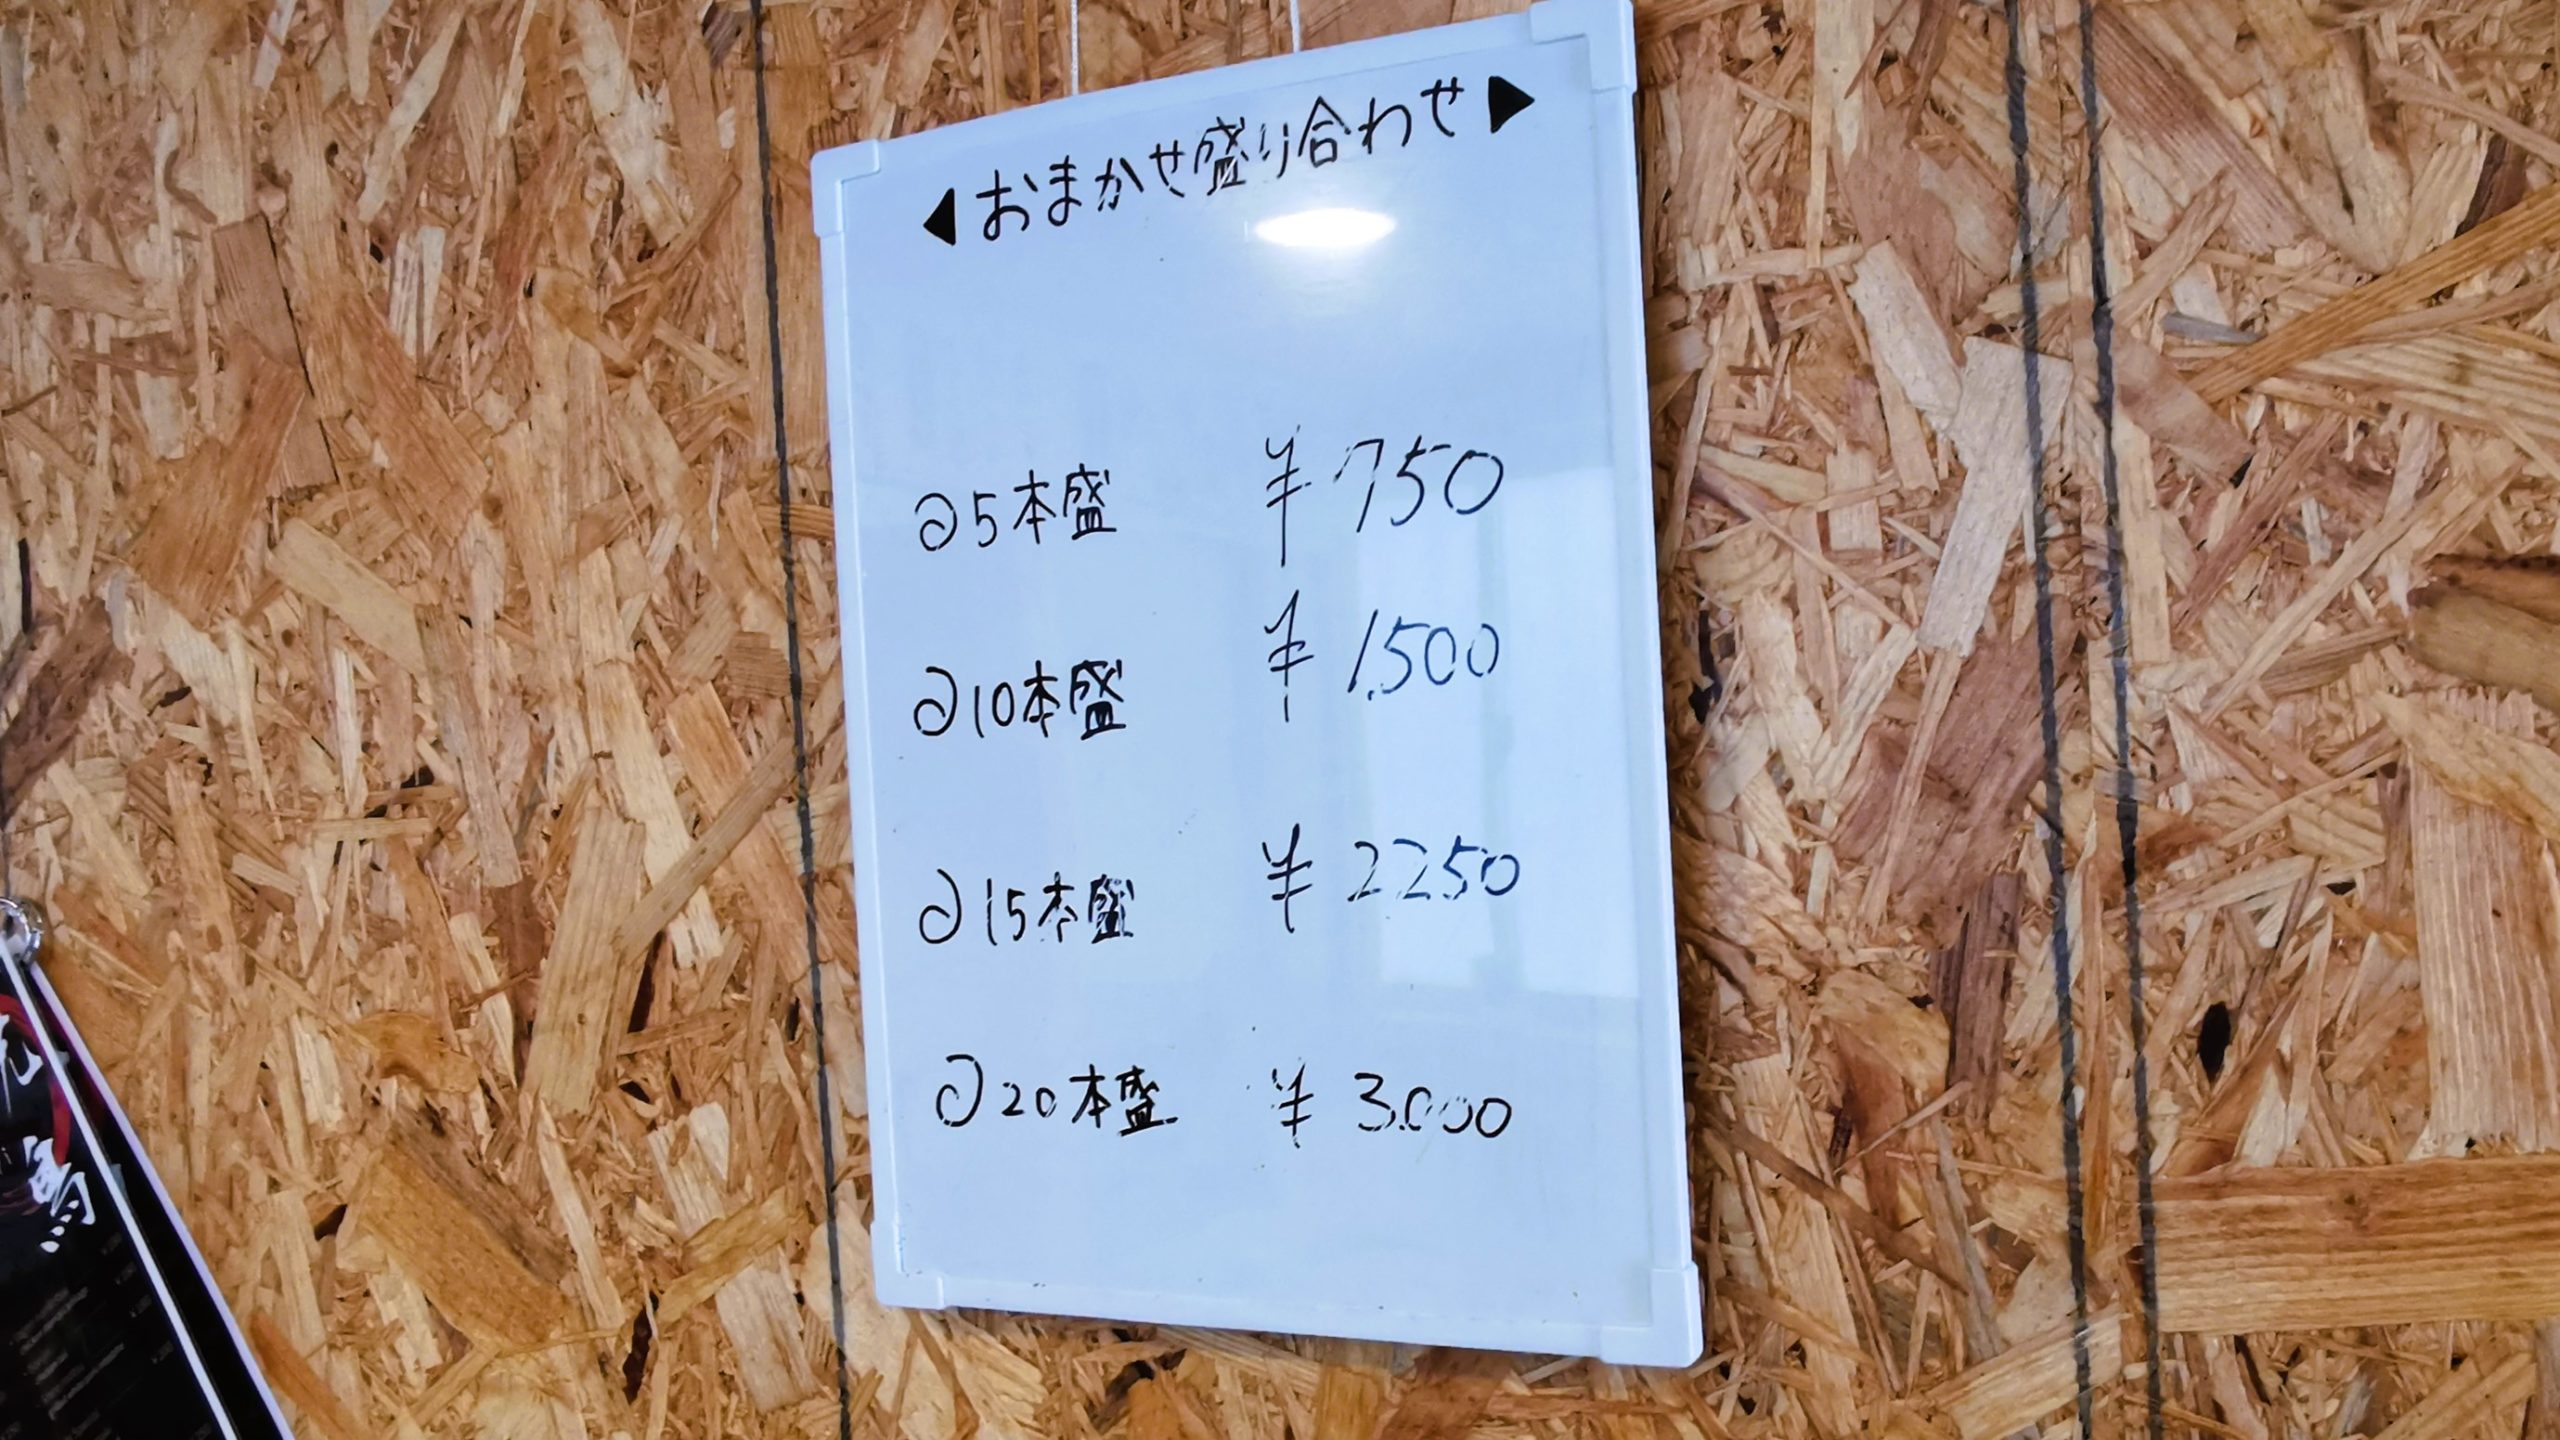 ◀おまかせ盛り合わせ▶
∂5本盛 ¥750
∂10本盛 ¥1,500
∂15本盛 ¥2250
∂20本盛 ¥3,000